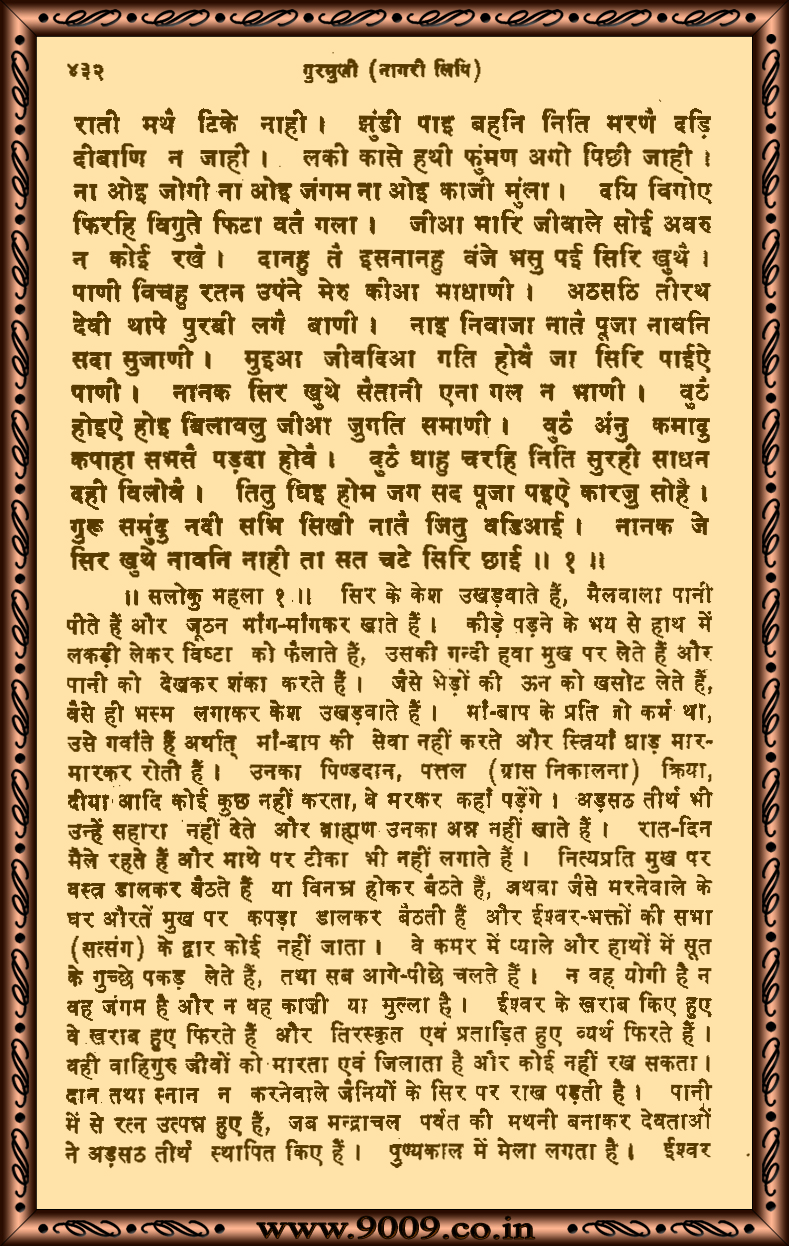 ४३२ गुरमुखी (नागरी लिपि)
राती मथै टिके नाही। झुंडी पाइ बहनि निति मरणै दड़ि
दीबाणि न जाही। लकी कासे हथी फुंमण अगो पिछी जाही।
ना ओइ जोगी ना ओइ जंगम ना ओइ काजी मुंला। दयि विगोए
फिरहि विगुते फिटा वतै गला। जीआ मारि जीवाले सोई अवरु
न कोई रखै। दानहु तै इसनानहु वंजे भसु पई सिरि खुथै।
पाणी विचहु रतन उपंने मेरु कीआ माधाणी। अठसठि तीरथ
देवी थापे पुरबी लगै बाणी। नाइ निवाजा नातै पूजा नावनि
सदा सुजाणी। मुइआ जीवदिआ गति होवै जा सिरि पाईऐ
पाणी। नानक सिर खुथे सैतानी एना गल न भाणी। वुठै
होइऐ होइ बिलावलु जीआ जुगति समाणी। वुठै अंनु कमादु
कपाहा सभसै पड़दा होवै। वुठै घाहु चरहि निति सुरही साधन
दही विलोवै। तितु घिइ होम जग सद पूजा पइऐ कारजु सोहै।
गुरू समुंदु नदी सभि सिखी नातै जितु वडिआई। नानक जे
सिर खुथे नावनि नाही ता सत चटे सिरि छाई॥ १॥
॥ सलोकु महला १॥ सिर के केश उखड़वाते हैं, मैलवाला पानी
पीते हैं और जूठन माँग-माँगकर खाते हैं। कीड़े पड़ने के भय से हाथ में
लकड़ी लेकर विष्टा को फैलाते हैं, उसकी गन्दी हवा मुख पर लेते हैं और
पानी को देखकर शंका करते हैं। जैसे भेड़ों की ऊन को खसोट लेते हैं,
वैसे ही भस्म लगाकर केश उखड़वाते हैं। माँ-बाप के प्रति जो कर्म था,
उसे गवाँते हैं अर्थात् माँ-बाप की सेवा नहीं करते और स्त्रियाँ धाड़ मार-
मारकर रोती हैं। उनका पिण्डदान, पत्तल (ग्रास निकालना) क्रिया,
दीया आदि कोई कुछ नहीं करता, वे मरकर कहाँ पड़ेंगे। अड़सठ तीर्थ भी
उन्हें सहारा नहीं देते और ब्राह्मण उनका अन्न नहीं खाते हैं। रात-दिन
मैले रहते हैं और माथे पर टीका भी नहीं लगाते हैं। नित्यप्रति मुख पर
वस्त्र डालकर बैठते हैं या विनम्र होकर बैठते हैं, अथवा जैसे मरनेवाले के
घर औरतें मुख पर कपड़ा डालकर बैठती हैं और ईश्वर-भक्तों की सभा
(सत्संग) के द्वार कोई नहीं जाता। वे कमर में प्याले और हाथों में सूत
के गुच्छे पकड़ लेते हैं, तथा सब आगे-पीछे चलते हैं। न वह योगी है न
वह जंगम है और न वह काज़ी या मुल्ला है। ईश्वर के खराब किए हुए
वे खराब हुए फिरते हैं और तिरस्कृत एवं प्रताड़ित हुए व्यर्थ फिरते हैं।
वही वाहिगुरु जीवों को मारता एवं जिलाता है और कोई नहीं रख सकता।
दान तथा स्नान न करनेवाले जैनियों के सिर पर राख पड़ती है। पानी
में से रत्न उत्पन्न हुए हैं, जब मन्द्राचल पर्वत की मथनी बनाकर देवताओं
ने अड़सठ तीर्थ स्थापित किए हैं। पुण्यकाल में मेला लगता है। ईश्वर
www.9009.co.in